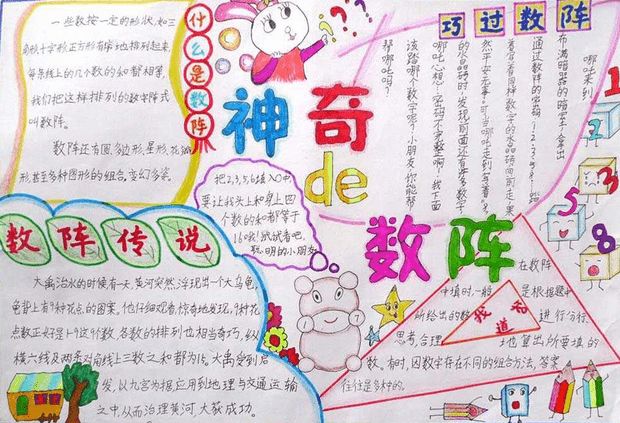 什么是数阵
一些数按一定的形状,如三
角形十字形正方形有序地排列起来,
每条线上的几个数的和都相等,
我们把这样排列的数字阵式
叫数阵。
数阵还有圆、多边形、星形、花瓣
形甚至多种图形的组合,变幻多姿。
神奇
de
数阵
巧过数阵
哪吒来到
布满暗器的暗室,拿出
通过数阵的密码
着写着同样数字的水晶砖向前走,果
然平安无事。可当哪吒走到写着
的水晶砖时,发现前面还有许多数字
哪吒心想:密码不完整啊!我下面
该踏哪个数字呢?小朋友,你能帮
帮哪吒吗?
1
2
3
5
8
把2,3,5,6填入〇中,
要让我头上和身上四
个数的和都等于
16哦!试试看吧,
聪明的小朋友
数阵传说
大禹治水的时候有一天,黄河突然浮现出一个大乌龟,
龟背上有9种花点的图案,他仔细观看,惊奇地发现,9种花
点数正好是1-9这9个数,各数的排列也相当奇巧,纵
横六线及两条对角线上三数之和都为15。大禹受到启
发,以九宫为根,应用到地理与交通运输
之中,从而治理黄河大获成功。
我知道
在数阵
中填时,一般是根据题中
所给出的数进行分析、
思考,合理地算出所要填的
数。有时,因数字存在不同的组合方法,答案
往往是多种的。